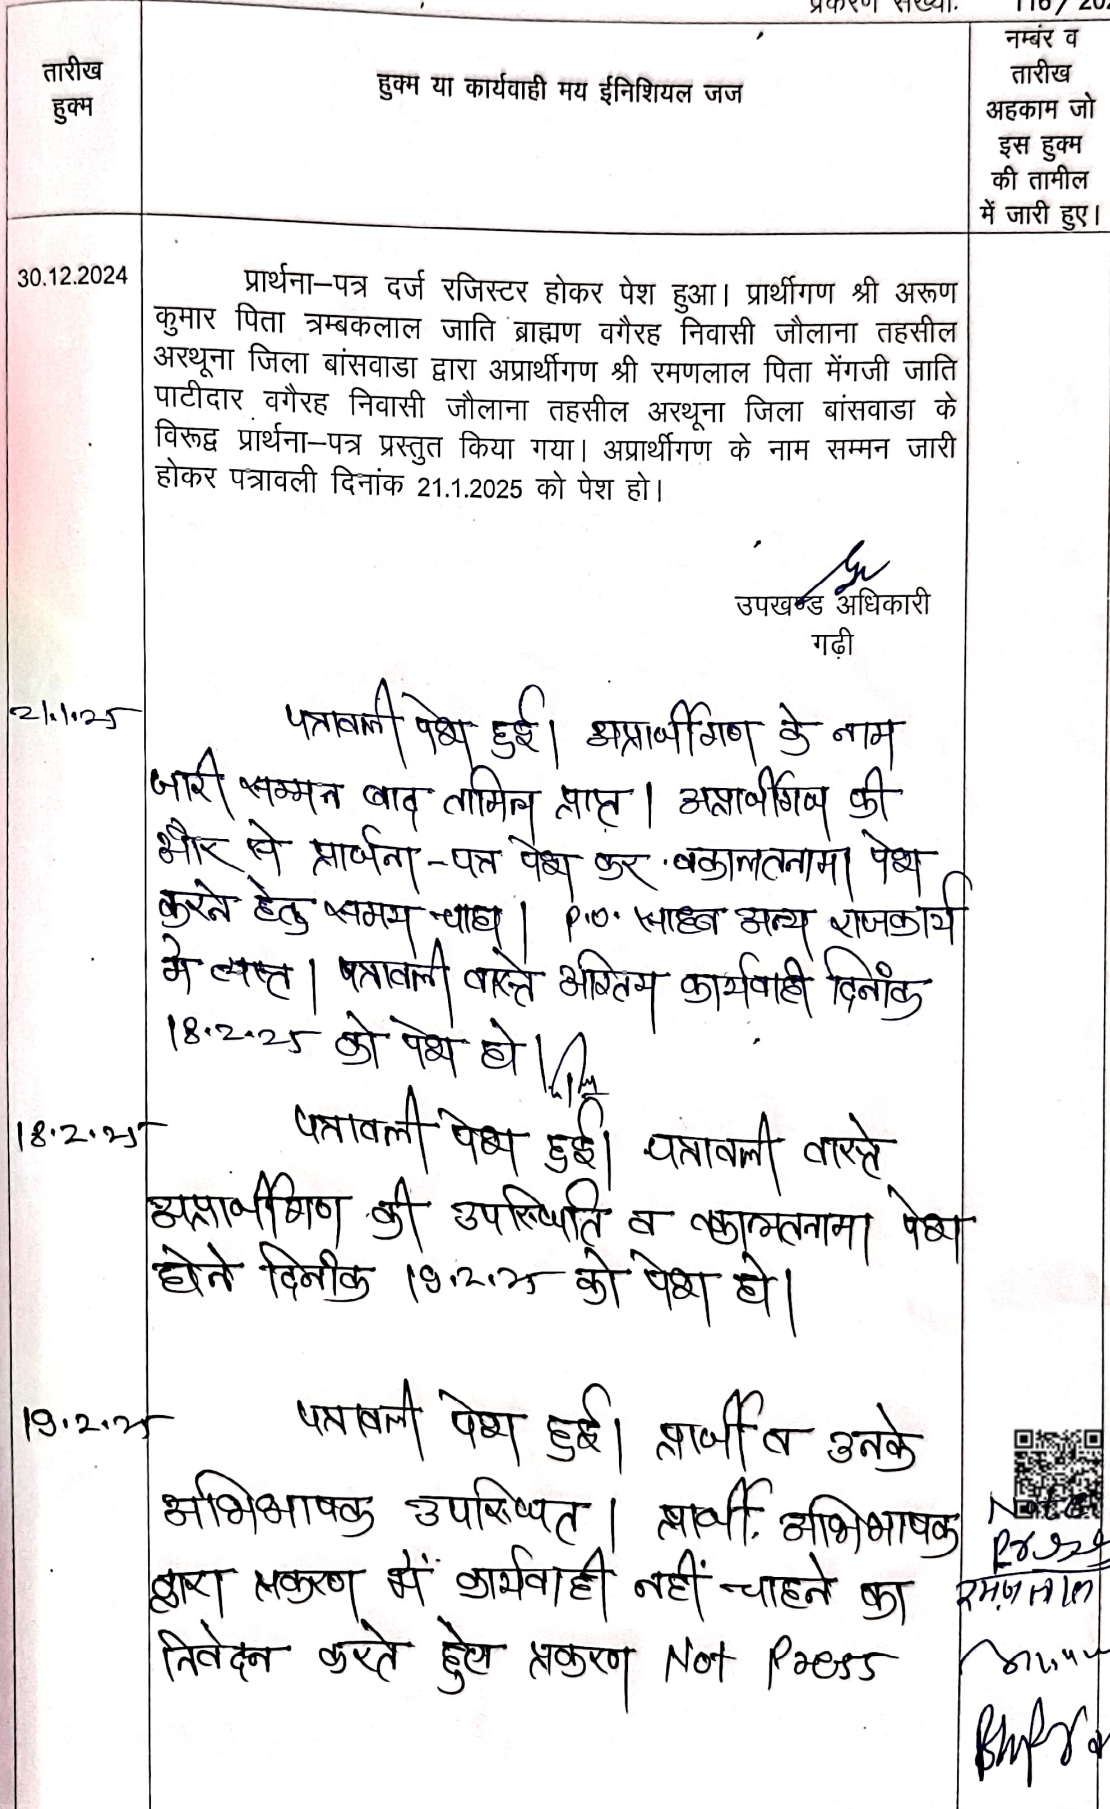 प्रकरण संख्या: 116/202
तारीख
हुक्म
हुक्म या कार्यवाही मय ईनिशियल जज
नम्बंर व
तारीख
अहकाम जो
इस हुक्म
की तामील
में जारी हुए।
30.12.2024
प्रार्थना–पत्र दर्ज रजिस्टर होकर पेश हुआ। प्रार्थीगण श्री अरूण
कुमार पिता त्रम्बकलाल जाति ब्राह्मण वगैरह निवासी जौलाना तहसील
अरथूना जिला बांसवाडा द्वारा अप्रार्थीगण श्री रमणलाल पिता मेंगजी जाति
पाटीदार वगैरह निवासी जौलाना तहसील अरथूना जिला बांसवाडा के
विरूद्व प्रार्थना–पत्र प्रस्तुत किया गया। अप्रार्थीगण के नाम सम्मन जारी
होकर पत्रावली दिनांक 21.1.2025 को पेश हो।
उपखण्ड अधिकारी
गढ़ी
21.1.25
पत्रावली पेश हुई। अप्रार्थीगण के नाम
जारी सम्मन बाद तामिल प्राप्त। अप्रार्थीगण की
और से प्रार्थना-पत्र पेश कर वकालतनामा पेश
करने हेतु समय चाहा। P.O. साहब अन्य राजकार्य
मे व्यस्त। पत्रावली वास्ते अग्रिम कार्यवाही दिनांक
18.2.25 को पेश हो।
18.2.25
पत्रावली पेश हुई। पत्रावली वास्ते
अप्रार्थीगण की उपस्थिति व वकालतनामा पेश
होने दिनांक 19.2.25 को पेश हो।
19.2.25
पत्रावली पेश हुई। प्रार्थी व उनके
अभिभाषक उपस्थित। प्रार्थी अभिभाषक
द्वारा प्रकरण में कार्यवाही नहीं चाहने का
निवेदन करते हुए प्रकरण Not Press
Not
Press
रमणलाल